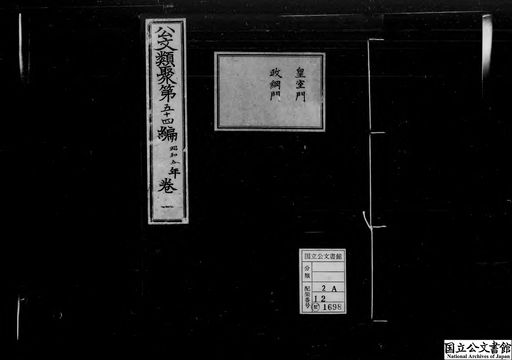 公文類聚第五十四編昭和五年巻一
皇室門
政綱門
国立公文書館
分類
配架番号
2A
12
1698
国立公文書館
National Archives of Japan